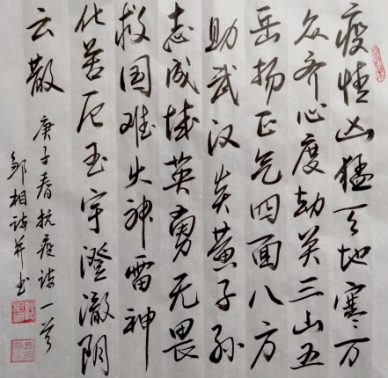 疫情凶猛天地寒万
众齐心度劫关三山五
岳扬正气四面八方
助武汉炎黄子孙
志成城英勇无畏
救国难火神雷神
化苦厄玉宇澄澈阴
云散
庚子春抗疫诗一首
邹相诗并书